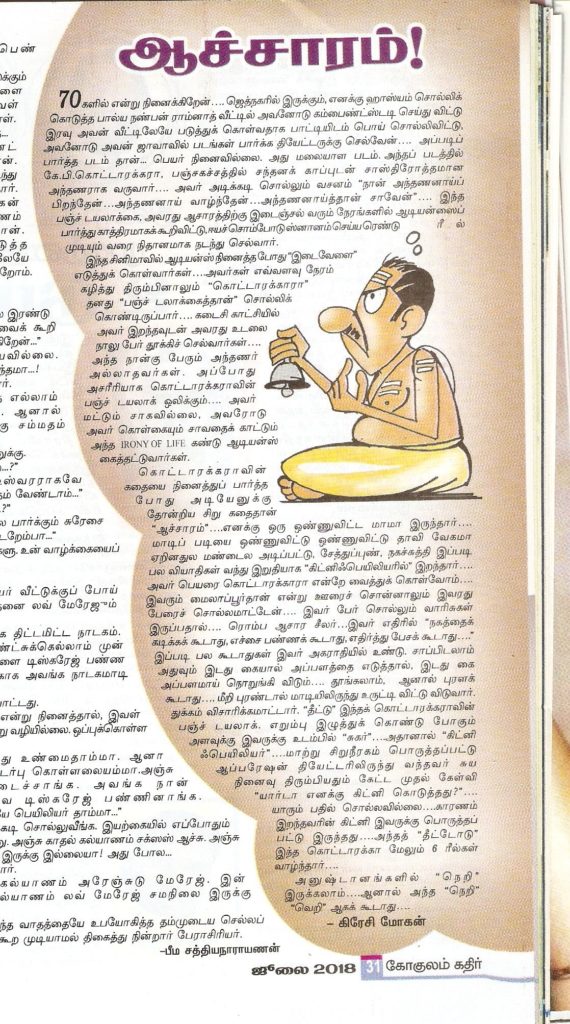 ஆச்சாரம்!
70களில் என்று நினைக்கிறேன்.... ஜெத்நகரில் இருக்கும், எனக்கு ஹாஸ்யம் சொல்லிக்
கொடுத்த பால்ய நண்பன் ராம்நாத் வீட்டில் அவனோடு கம்பைண்ட்ஸ்டடி செய்து விட்டு
இரவு அவன் வீட்டிலேயே படுத்துக் கொள்வதாக பாட்டியிடம் பொய் சொல்லிவிட்டு,
அவனோடு அவன் ஜாவாவில் படங்கள் பார்க்க தியேட்டருக்கு செல்வேன்.... அப்படிப்
பார்த்த படம் தான்... பெயர் நினைவில்லை. அது மலையாள படம். அந்தப் படத்தில்
கே.பி.கொட்டாரக்கரா, பஞ்சகச்சத்தில் சந்தனக் காப்புடன் சாஸ்திரோத்தமான
அந்தணராக வருவார்.... அவர் அடிக்கடி சொல்லும் வசனம் "நான் அந்தணனாய்ப்
பிறந்தேன்...அந்தணனாய் வாழ்ந்தேன்...அந்தணனாய்த்தான் சாவேன்".... இந்த
பஞ்ச் டயலாக்கை, அவரது ஆசாரத்திற்கு இடைஞ்சல் வரும் நேரங்களில் ஆடியன்ஸைப்
பார்த்து காத்திரமாகக் கூறிவிட்டு, ஈயச் சொம்போடு ஸ்னானம் செய்ய ரெண்டு ரீல்
முடியும் வரை நிதானமாக நடந்து செல்வார்.
இந்த சினிமாவில் ஆடியன்ஸ் நினைத்த போது "இடைவேளை"
எடுத்துக் கொள்வார்கள்...அவர்கள் எவ்வளவு நேரம்
கழித்து திரும்பினாலும் "கொட்டாரக்காரா"
தனது "பஞ்ச் டலாக்கைத்தான்" சொல்லிக்
கொண்டிருப்பார்.... கடைசி காட்சியில்
அவர் இறந்தவுடன் அவரது உடலை
நாலு பேர் தூக்கிச் செல்வார்கள்....
அந்த நான்கு பேரும் அந்தணர்
அல்லாதவர்கள். அப்போது
அசரீரியாக கொட்டாரக்கராவின்
பஞ்ச் டயலாக் ஒலிக்கும்.... அவர்
மட்டும் சாகவில்லை, அவரோடு
அவர் கொள்கையும் சாவதைக் காட்டும்
அந்த IRONY OF LIFE கண்டு ஆடியன்ஸ்
கைத்தட்டுவார்கள்.
கொட்டாரக்கராவின்
கதையை நினைத்துப் பார்த்த
போது அடியேனுக்கு
தோன்றிய சிறு கதைதான்
"ஆச்சாரம்"....எனக்கு ஒரு ஒண்ணுவிட்ட மாமா இருந்தார்....
மாடிப் படியை ஒண்ணுவிட்டு ஒண்ணுவிட்டு தாவி வேகமா
ஏறினதுல மண்டைல அடிப்பட்டு, சேத்துப்புண், நகச்சுத்தி இப்படி
பல வியாதிகள் வந்து இறுதியாக "கிட்னிஃபெயிலியரில்" இறந்தார்....
அவர் பெயரை கொட்டாரக்காரா என்றே வைத்துக் கொள்வோம்....
இவரும் மைலாப்பூர்தான் என்று ஊரைச் சொன்னாலும் இவரது
பேரைச் சொல்லமாட்டேன்.... இவர் பேர் சொல்லும் வாரிசுகள்
இருப்பதால்.... ரொம்ப ஆசார சீலர்...இவர் எதிரில் "நகத்தைக்
கடிக்கக் கூடாது, எச்சை பண்ணக் கூடாது, எதிர்த்து பேசக் கூடாது...."
இப்படி பல கூடாதுகள் இவர் அகராதியில் உண்டு. சாப்பிடலாம்
அதுவும் இடது கையால் அப்பளத்தை எடுத்தால், இடது கை
அப்பளமாய் நொறுங்கி விடும்.... தூங்கலாம், ஆனால் புரளக்
கூடாது....மீறி புரண்டால் மாடியிலிருந்து உருட்டி விட்டு விடுவார்.
துக்கம் விசாரிக்கமாட்டார். "தீட்டு" இந்தக் கொட்டாரக்கராவின்
பஞ்ச் டயலாக். எறும்பு இழுத்துக் கொண்டு போகும்
அளவுக்கு இவருக்கு உடம்பில் "சுகர்"...அதனால் "கிட்னி
ஃபெயிலியர்"....மாற்று சிறுநீரகம் பொருத்தப்பட்டு
ஆப்பரேஷன் தியேட்டரிலிருந்து வந்தவர் சுய
நினைவு திரும்பியதும் கேட்ட முதல் கேள்வி
"யார்டா எனக்கு கிட்னி கொடுத்தது?"....
யாரும் பதில் சொல்லவில்லை....காரணம்
இறந்தவரின் கிட்னி இவருக்கு பொருத்தப்
பட்டு இருந்தது....அந்தத் "தீட்டோடு"
இந்த கொட்டாரக்கா மேலும் 6 ரீல்கள்
வாழ்ந்தார்....
அனுஷ்டானங்களில் "நெறி"
இருக்கலாம்....ஆனால் அந்த "நெறி"
"வெறி" ஆகக் கூடாது....
– கிரேசி மோகன்
ஜூலை 2018 31 கோகுலம் கதிர்
வீட்டுக்குப் போய்
லவ் மேரேஜும்
திட்டமிட்ட நாடகம்.
முன்
டிஸ்கரேஜ் பண்ண
அவங்க நாடகமாடி
என்று நினைத்தால், இவள்
வழியில்லை. ஒப்புக்கொள்ள
உண்மைதாம்மா. ஆனா
கொள்ளலையம்மா. அஞ்சு
அவங்க நான்
டிஸ்கரேஜ் பண்ணினாங்க.
பெயிலியர் தாம்மா..."
சொல்லுவீங்க. இயற்கையில் எப்போதும்
அஞ்சு காதல் கல்யாணம் சக்ஸஸ் ஆச்சு. அஞ்சு
இருக்கு இல்லையா! அது போல...
கல்யாணம் அரேஞ்சுடு மேரேஜ். இன்
லவ் மேரேஜ் சமநிலை இருக்கு
வாதத்தையே உபயோகித்த தம்முடைய செல்லப்
கூற முடியாமல் திகைத்து நின்றார் பேராசிரியர்.
–பீம சத்தியநாராயணன்